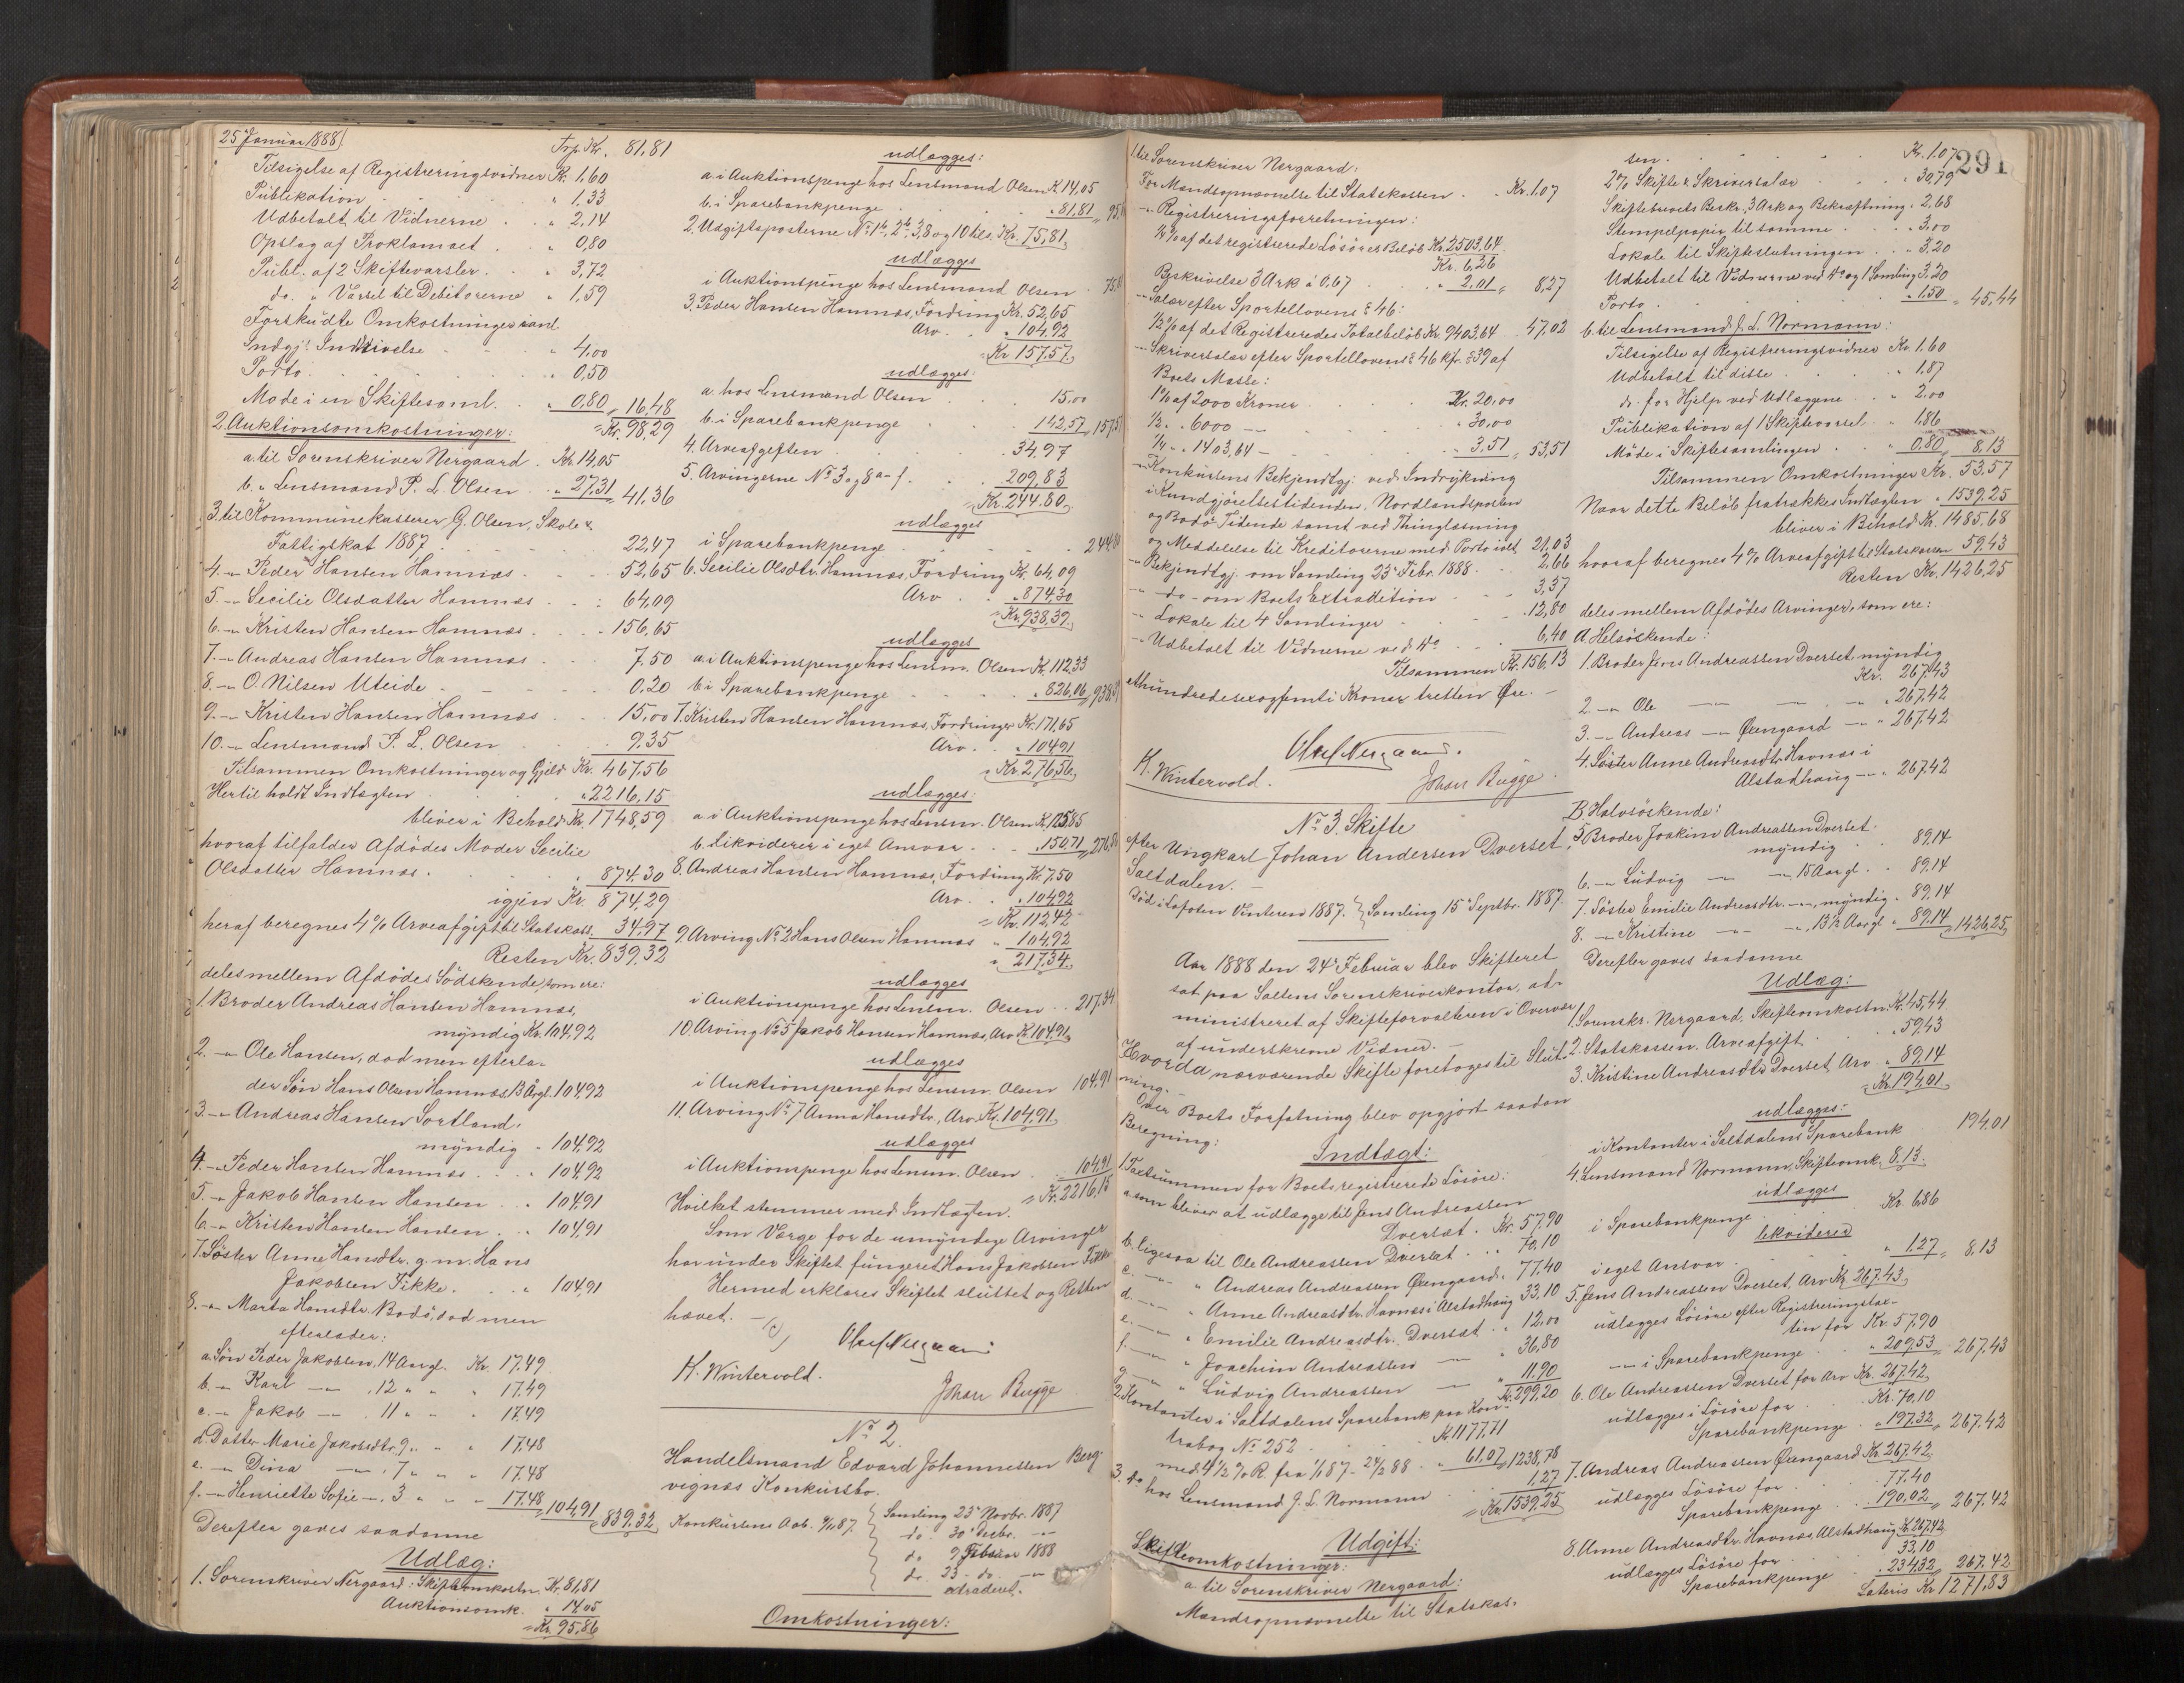 25 Januar 1888.
Trp. Kr. 81,81
Tilsigelse af Registreringsvidner Kr. 1,60
Publikation . . " 1,33
Udbetalt til Vidnerne . . " 2,14
Opslag af Proklamaet . " 0,80
Publ. af 2 Skiftevarsler . " 3,72
do. " Varsel til Debitorerne " 1,59
Forskudte Omkostninger
Indgj.
4,00
Porto . . " 0,50
Møde i en Skiftesaml. . " 0,80 = 16,48
= Kr. 98,29
2. Auktionsomkostninger:
a. til Sorenskriver Nergaard . Kr. 14,05
b. " Lensmand P. L. Olsen . . " 27,31 41,36
3. til Kommunekasserer G. Olsen, Skole &
Fattigskat 1887 . . 22,47
4. -"- Peder Hansen Hamnæs . . . 52,65
5. -"- Secilie Olsdatter Hamnæs . . 64,09
6. -"- Kristen Hansen Hamnæs . . . 156,65
7. -"- Andreas Hansen Hamnæs . . 7,50
8. -"- O. Nilsen Uteide . - - - 0,20
9. -"- Kristen Hansen Hamnæs . . . 15,00
10. -"- Lensmand P. L. Olsen . . 9,35
Tilsammen Omkostninger og Gjeld Kr. 467,56
Hertil holdt Indtægten . . . " 2216,15
bliver i Behold Kr. 1748,59
hvoraf tilfalder Afdødes Moder Secilie
Olsdatter Hamnæs . . . " 874,30
igjen Kr. 874,29
heraf beregnes 4% Arveafgift til Statskass. 34,97
Resten Kr. 839,32
deles mellem Afdødes Södskende, som ere:
1. Broder Andreas Hansen Hamnæs,
myndig Kr. 104,92
2. -"- Ole Hansen, död men efterla-
der Sön Hans Olsen Hamnæs, 13 Aargl. 104,92
3. -"- Andreas Hansen Sortland,
myndig " 104,92
4. -"- Peder Hansen Hamnæs . . . " 104,92
5. -"- Jakob Hansen Hansen . . 104,91
6. -"- Kristen Hansen Hansen . . 104,91
7. Søster Anne Hansdtr. g. m. Hans
Jakobsen Fikke . . " 104,91
8. -"- Marta Hansdtr. Bodö, död men
efterlader:
a. Sön Peder Jakobsen, 14 Aargl. Kr. 17,49
b. -"- Karl -"- , 12 " " " 17,49
c. -"- Jakob -"- , 11 " " " 17,49
d. Datter Marie Jakobsdtr. 9 " " " 17,48
e. -"- Dina -"- , 7 " " " 17,48
f. -"- Henriette Sofie -"-, 3 " " " 17,48 = 104,91 = 839,32
Derefter gaves saadanne
Udlæg:
1. Sorenskriver Nergaard: Skifteomkostn. Kr. 81,81
Auktionsomk. " 14,05
= Kr. 95,86
udlægges:
a. i Auktionspenge hos Lensmand Olsen Kr. 14,05
b. i Sparebankpenge . . . . " 81,81
2. Udgiftsposterne No. 1b, 2b, 3, 8 og 10 tils. Kr. 75,81.
udlægges
i Auktionspenge hos Lensmand Olsen
3. Peder Hansen Hamnæs, Fordring Kr. 52,65
Arv . . " 104,92
= Kr. 157,57.
udlægges:
a. hos Lensmand Olsen . . . 15,00
b. i Sparebankpenge . . . 142,57
4. Arveafgiften . . . 34,97
5. Arvingerne No. 3 og 8 a-f . . 209,83
Kr. 244,80.
udlægges
i Sparebankpenge . . .
6. Secilie Olsdtr. Hamnæs, Fordring Kr. 64,09
Arv . . " 874,30
= Kr. 938,39.
udlægges
a. i Auktionspenge hos Lensm. Olsen Kr. 112,33
b. i Sparebankpenge . . . . " 826,06
7. Kristen Hansen Hamnæs, Fordringer Kr. 171,65
Arv . . " 104,91
= Kr. 276,56.
udlægges:
a. i Auktionspenge hos Lensm. Olsen Kr. 125,85
b. Likviderer i eget Ansvar . . . " 150,71
8. Andreas Hansen Hamnæs, Fordring Kr. 7,50
Arv . . " 104,92
= Kr. 112,42
9. Arving No. 2 Hans Olsen Hamnæs " 104,92
" 217,34.
udlægges
i Auktionspenge hos Lensm. Olsen . . 217,34
10. Arving No. 5 Jakob Hansen Hamnæs, Arv Kr. 104,91.
udlægges
i Auktionspenge hos Lensm. Olsen 104,91
11. Arving No. 7 Anna Hansdtr., Arv Kr. 104,91.
udlægges
i Auktionspenge hos Lensm. Olsen . . 104,91
= Kr. 2216,15
Hvilket stemmer med Indtægten.
Som Værge for de umyndige Arvinger
har under Skiftet fungeret Hans Jakobsen Fikke
Hermed erklæres Skiftet sluttet og Retten
hævet. -
Oluf Nergaard
K. Wintervold.
Johan Bugge
No. 2.
Handelsmand Edvard Johannessen Berg
vignæs Konkursbo.
Konkursens Aab. 9/11 87.
Samling 25 Novbr. 1887
do. 30 Decbr. -"-
do. 9 Februar 1888
do. 23 - do. -"-
extraderet.
Omkostninger:
291
1. til Sorenskriver Nergaard:
For Mandsopnævnelse til Statskassen . . Kr. 1,07
-"- Registreringsforretningen:
1/4 % af det registrerede Lösöres Beløb Kr. 2503,64
Kr. 6,26
Beskrivelse 3 Ark à 0,67 . . " 2,01 = 8,27
-"- Salær efter Sportellovens § 46:
1/2 % af det Registreredes Totalbeløb Kr. 9403,64 . 47,02
-"- Skriversalær efter Sportellovens § 46 kfr. § 39 af
Boets Masse:
1% af 2000 Kroner . . Kr. 20,00
1/2 " " 6000 -"- . . " 30,00
1/4 " " 1403,64 - . . 3,51 = 53,51
-"- Konkursens Bekjendtgj. ved Indrykning
i Kundgjørelsestidenden, Nordlandsposten
og Bodö Tidende samt ved Thinglæsning
og Meddelelse til Kreditorerne med Porto iålt 21,03
-"- Bekjendtgj. om Samling 25 Febr. 1888 . . 2,66
-"- do - om Boets Extradition . . 3,37
-"- Lokale til 4 Samlinger . . . 12,80
-"- Udbetalt til Vidnerne ved do. . . 6,40
Tilsammen Kr. 156,13
ethundredesexogfemti Kroner tretten Øre. -
Oluf Nergaard.
K. Wintervold.
Johan Bugge
No. 3. Skifte
efter Ungkarl Johan Andersen Dverset,
Saltdalen. -
Död i Lofoten Vinteren 1887. Samling 15 Septbr. 1887.
Aar 1888 den 24 Februar blev Skifteret
sat paa Saltens Sorenskriverkontor, ad-
ministreret af Skifteforvalteren i Overvær
af underskrevne Vidner. -
Hvorda nærværende Skifte foretoges til Slut-
ning.
Over Boets Forfatning blev opgjört saadan
Beregning:
Indtægt:
1. Taxtsummen for Boets registrerede Lösöre:
a. som bliver at udlægge til Jens Andreassen
Dverset . Kr. 57,90
b. ligesaa til Ole Andreassen Dverset . . . 70,10
c. -"- " Andreas Andreassen Øengaard . 77,40
d. -"- " Anne Andreasdtr. Havnæs i Alstadhaug 33,10
e. -"- " Emilie Andreasdtr. Dverset . . 12,00
f. -"- " Joachim Andreassen -"- " 36,80
g. -"- " Ludvig Andreassen -"- " 11,90
Kr. 299,20
2. Kontanter i Saltdalens Sparebank paa Kon-
trabog No. 252 . . Kr. 1177,71
med 4 1/2 % R. fra 1/1 87 - 24/2 88 . " 61,07 = 1238,78
3. do. hos Lensmand J. L. Normann . . 1,27
= Kr. 1539,25
Udgift:
Skifteomkostninger:
a. til Sorenskriver Nergaard:
Mandsopnævnelse til Statskas-
sen . . . . Kr. 1,07
2% Skifte & Skriversalær . . " 30,79
Skiftebrevets Beskr., 3 Ark og Bekræftning " 2,68
Stempelpapir til samme . . . " 3,00
Lokale til Skifteslutningen . . " 3,20
Udbetalt til Vidnerne ved do. og 1 Samling 3,20
Porto . . . " 1,50 = 45,44
b. til Lensmand J. L. Normann:
Tilsigelse af Registreringsvidner Kr. 1,60
Udbetalt til disse . . " 1,87
do. for Hjelp ved Udlæggene . . " 2,00
Publikation af 1 Skiftevarsel . " 1,86
Möde i Skiftesamlingen . . " 0,80 = 8,13
Tilsammen Omkostninger Kr. 53,57
Naar dette Beløb fratrækkes Indtægten . 1539,25
bliver i Behold Kr. 1485,68
hvoraf beregnes 4% Arveafgift til Statskassen 59,43
Resten Kr. 1426,25
deles mellem Afdödes Arvinger, som ere:
A. Helsöskende:
1. Broder Jens Andreassen Dverset, myndig
Kr. 267,43
2. -"- Ole -"- -"- " 267,42
3. -"- Andreas -"- Øengaard -"- " 267,42
4. Söster Anne Andreasdtr. Havnæs i
Alstadhaug -"- " 267,42
B. Halvsöskende:
5. Broder Joakim Andreassen Dverset.
myndig . 89,14
6. -"- Ludvig -"- -"- 15 Aargl . 89,14
7. Söster Emilie Andreasdtr. -"-, myndig . 89,14
8. -"- Kristine -"- -"-, 13 1/2 Aargl " 89,14 = 1426,25
Derefter gaves saadanne
Udlæg:
1. Sorenskr. Nergaard, Skifteomkostn. Kr. 45,44
2. Statskassen. Arveafgift . . . 59,43
3. Kristine Andreasdtr. Dverset, Arv . 89,14
= Kr. 194,01
udlægges:
i Kontanter i Saltdalens Sparebank 194,01
4. Lensmand Normann. Skifteomk. 8,13.
udlægges
i Sparebankpenge . . Kr. 6,86
likviderer
i eget Ansvar . . " 1,27 = 8,13
5. Jens Andreassen Dverset, Arv Kr. 267,43,
udlægges Lösöre efter Registreringstax-
ten for Kr. 57,90
-"- i Sparebankpenge . . " 209,53 = 267,43
6. Ole Andreassen Dverset for Arv Kr. 267,42,
udlægges i Lösöre for . . Kr. 70,10
Sparebankpenge . . " 197,32 = 267,42
7. Andreas Andreassen Øengaard Kr. 267,42.
udlægges Lösöre for . . 77,40
Sparebankpenge . . 190,02 = 267,42
8. Anne Andreasdtr. Havnæs, Alstadhaug Kr. 267,42
udlægges Lösöre for . . 33,10
Sparebankpenge . . " 234,32 = 267,42
Lateris Kr. 1271,83